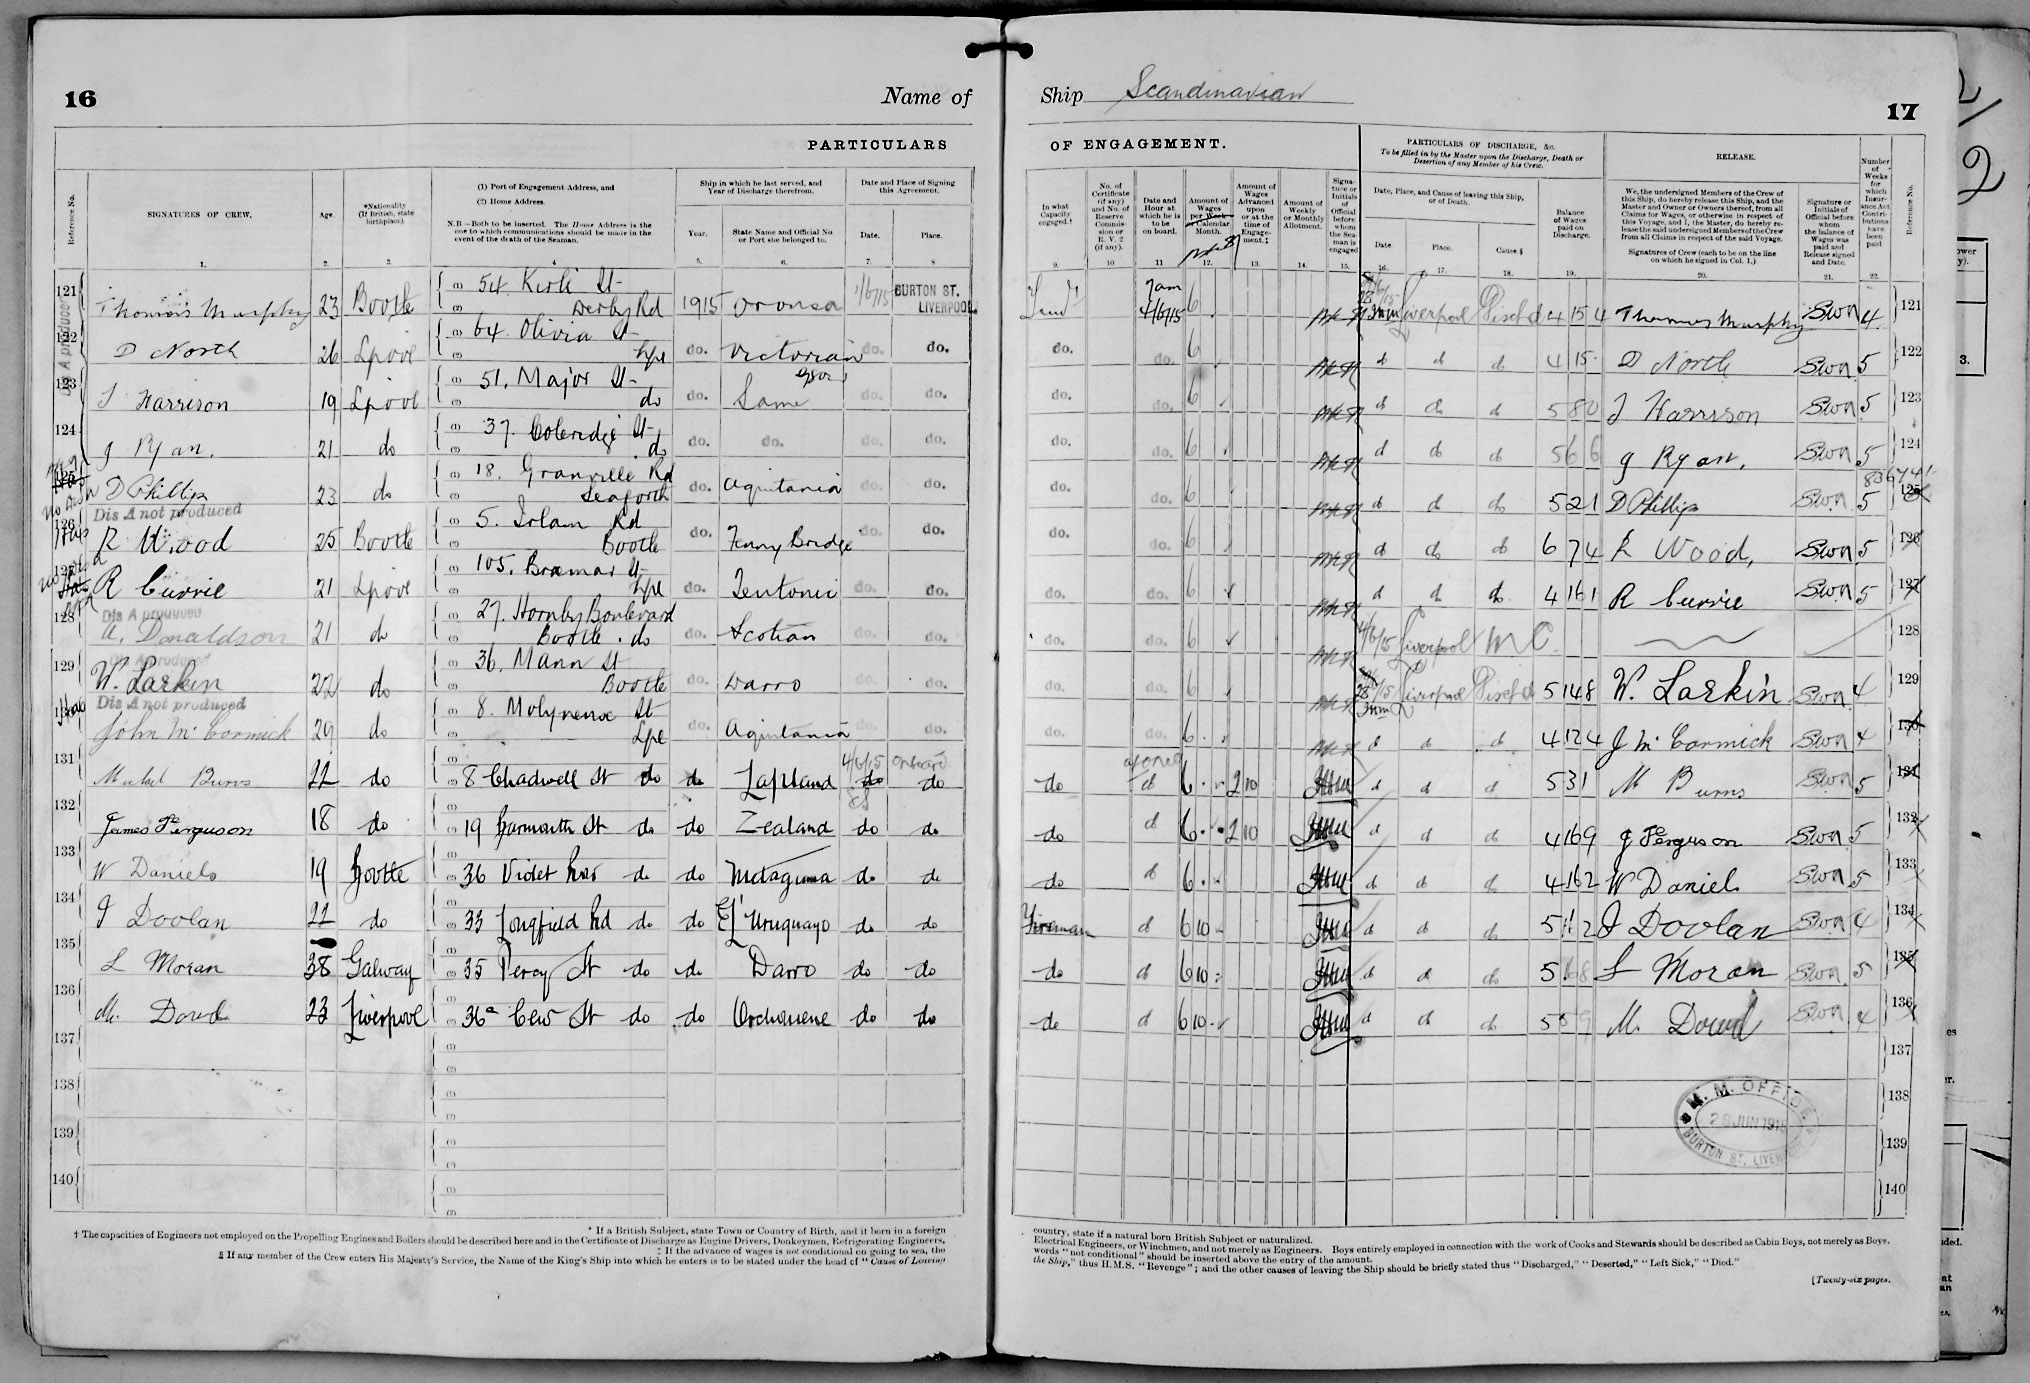 16
Name of
PARTICULARS
Reference No.
SIGNATURES OF CREW.
Age.
*Nationality
(If British, state
birthplace).
(1) Port of Engagement Address, and
(2) Home Address.
N.B.—Both to be inserted. The Home Address is the
one to which communications should be made in the
event of the death of the Seaman.
Ship in which he last served, and
Year of Discharge therefrom.
Year.
State Name and Official No.
or Port she belonged to.
Date and Place of Signing
this Agreement.
Date.
Place.
1. 2. 3. 4 5. 6. 7. 8
121 Thomas Murphy 23 Bootle 54 St
Derby Rd 1915 Oronsa BURTON ST. LIVERPOOL
122 D North 26 Lpool 64. Olivia St
Lpl do. Victorian do. do.
123 J Harrison 19 Lpool 51. Major St
do do. Same do. do.
124 J Ryan. 21 do 37. Coleridge St
do do. do. do. do.
125 D Phillips 23 do 18. Granville Rd
Seaforth do. Aquitania do. do.
Dis A not produced
126 R Wood 25 Bootle 5. Irlam Rd
Bootle do. do.
127 R Currie 21 Lpool 105. Braemar St
Lpl do. Teutonic do. do.
Dis A produced
128 A. Donaldson 21 do 27. Hornby Boulevard
Bootle . do do. Scotian do. do.
129 W. Larkin 22 do 36. Mann St
Bootle do. Darro do. do.
Dis A not produced
130 John McCormick 29 do 8. Molyneux St
Lpl do. Aquitania do. do.
131 Burns 22 do 8 Chadwell St do do Lapland 4/6/15 do
132 James Ferguson 18 do 19 Yarmouth St do do Zealand do do
133 W Daniels 19 Bootle 36 Violet do do Metagama do do
134 J Doolan 22 do 33 Longfield Rd do do El Uruguayo do do
135 L Moran 38 Galway 35 Percy St do do Darro do do
136 M. Dowd 23 Liverpool 36a St do do do do
137
138
139
140
* If a British Subject, state Town or Country of Birth, and if born in a foreign
† The capacities of Engineers not employed on the Propelling Engines and Boilers should be described here and in the Certificate of Discharge as Engine Drivers, Donkeymen, Refrigerating Engineers,
‡ If the advance of wages is not conditional on going to sea, the
§ If any member of the Crew enters His Majesty's Service, the Name of the King's Ship into which he enters is to be stated under the head of "Cause of Leaving
Ship Scandinavian
17
OF ENGAGEMENT.
PARTICULARS OF DISCHARGE, &c.
To be filled in by the Master upon the Discharge, Death or
Desertion of any Member of his Crew.
RELEASE.
In what
Capacity
engaged.†
No. of
Certificate
(if any)
and No. of
Reserve
Commis-
sion or
R. V. 2
(if any).
Date and
Hour at
which he is
to be
on board.
Amount of
Wages
per Week
Calendar
Month.
Amount of
Wages
Advanced
upon
or at the
time of
Engage-
ment.‡
Amount of
Weekly
or Monthly
Allotment.
Signa-
ture or
Initials
of
Official
before
whom
the Sea
man is
engaged
Date, Place, and Cause of leaving this Ship,
or of Death.
Date.
Place.
Cause.§
Balance
of Wages
paid on
Discharge.
We, the undersigned Members of the Crew of
this Ship, do hereby release this Ship, and the
Master and Owner or Owners thereof, from all
Claims for Wages, or otherwise in respect of
this Voyage, and I, the Master, do hereby re-
lease the said undersigned Members of the Crew
from all Claims in respect of the said Voyage.
Signatures of Crew (each to be on the line
on which he signed in Col. 1.)
Signature or
Initials of
Official before
whom
the balance of
Wages was
paid and
Release signed
and Date.
Number
of
Weeks
for
which
Insur-
ance Act
Contri-
butions
have
been
paid
Reference No.
9. 10 11 12. 13. 14. 15. 16. 17. 18. 19. 20. 21. 22.
7am 4/6/15 6 Liverpool Disch'd 4 15 4 Thomas Murphy 4 121
do. do. 6 do do do 4 15 D North 5 122
do. do. 6 do do do 5 8 0 J Harrison 5 123
do. do. 6 do do do 5 6 6 J Ryan. 5 124
do. do. 6 do do do 5 2 1 D Phillips 5 125
do. do. 6 do do do 6 7 4 R Wood, 5 126
do. do. 6 do do do 4 16 1 R Currie 5 127
do. do. 6 4/6/15 Liverpool 128
do. do. 6 Liverpool Disch'd 5 14 8 W. Larkin 4 129
do. do. 6 do do do 4 12 4 J McCormick 4 130
do do 6 2 10 do do do 5 3 1 M Burns 5 131
do do 6 2 10 do do do 4 16 9 J Ferguson 5 132
do do 6 do do do 4 16 2 W Daniels 5 133
Fireman do 6 10 do do do 5 1 2 J Doolan 4 134
do do 6 10 do do do 5 L Moran 5 135
do do 6 10 do do do 5 M. Dowd 4 136
137
138
139
140
M. M. OFFICE
28 JUN 1915
BURTON ST. LIVERPOOL
country, state if a natural born British Subject or naturalized.
Electrical Engineers, or Winchmen, and not merely as Engineers. Boys entirely employed in connection with the work of Cooks and Stewards should be described as Cabin Boys, not merely as Boys.
words "not conditional" should be inserted above the entry of the amount.
the Ship," thus H.M.S. "Revenge"; and the other causes of leaving the Ship should be briefly stated thus "Discharged," "Deserted," "Left Sick," "Died."
[Twenty-six pages.